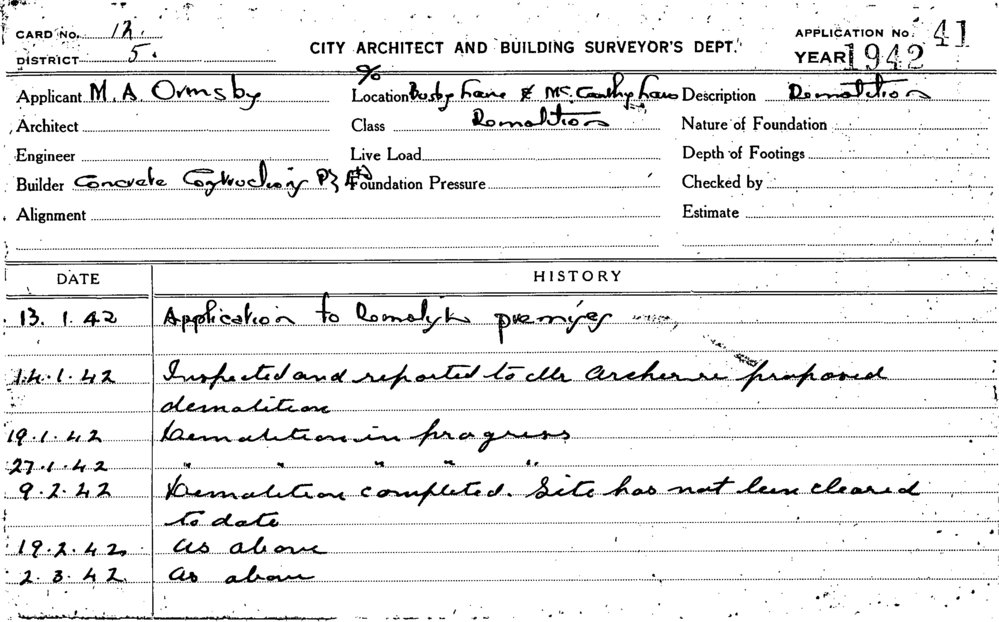 CARD No. 12.
DISTRICT 5.
CITY ARCHITECT AND BUILDING SURVEYOR'S DEPT.
APPLICATION No. 41
YEAR 1942
Applicant M. A. Ormsby
Location % Busby Lane & Mc. Carthy Lane
Description Demolition
Architect
Class Demolition
Nature of Foundation
Engineer
Live Load
Depth of Footings
Builder Concrete Constructions P/L
Foundation Pressure
Checked by
Alignment
Estimate
DATE HISTORY
13. 1. 42 Application to Demolish premises
14.1.42 Inspected and reported to Mr Archer re proposed
demolition
19.1.42 Demolition in progress
27.1.42 " " " " "
9.2.42 Demolition completed. Site has not been cleared
to date
19.2.42 as above
2.3.42 as above